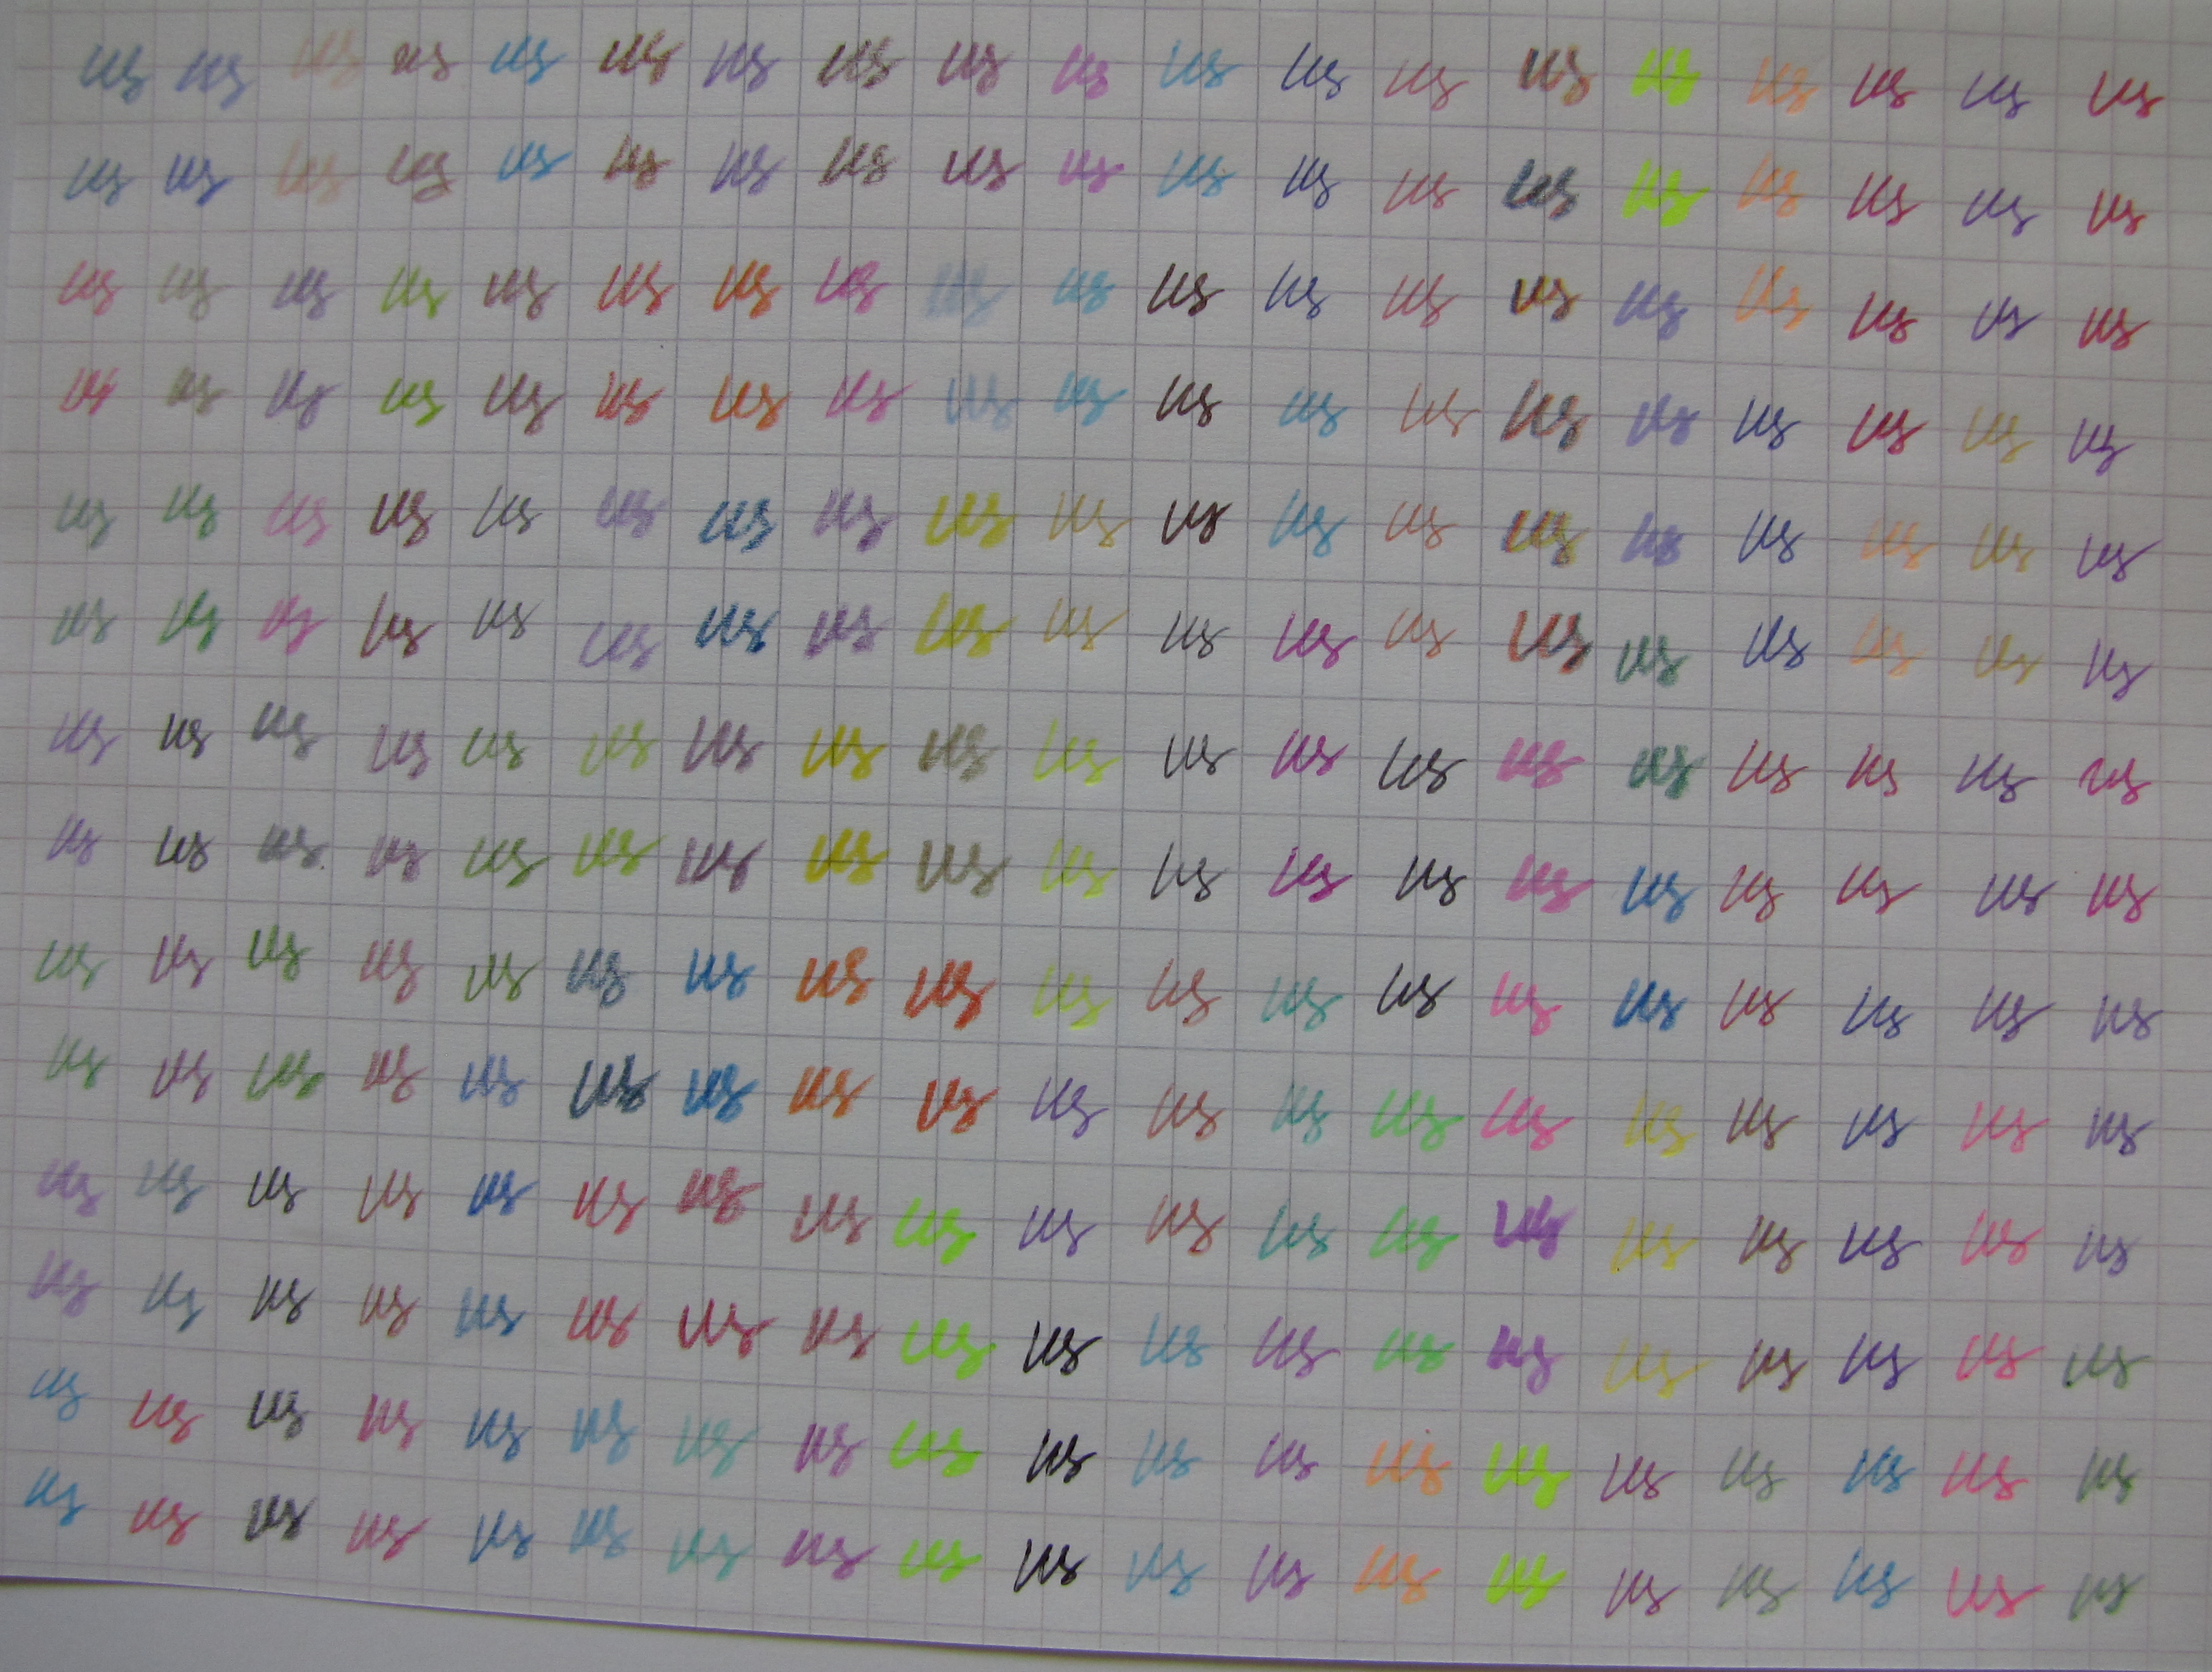 us us us us us us us us us us us us us us us us us us us
us us us us us us us us us us us us us us us us us us us
us us us us us us us us us us us us us us us us us us us
us us us us us us us us us us us us us us us us us us us
us us us us us us us us us us us us us us us us us us us
us us us us us us us us us us us us us us us us us us us
us us us us us us us us us us us us us us us us us us us
us us us us us us us us us us us us us us us us us us us
us us us us us us us us us us us us us us us us us us us
us us us us us us us us us us us us us us us us us us us
us us us us us us us us us us us us us us us us us us us
us us us us us us us us us us us us us us us us us us us
us us us us us us us us us us us us us us us us us us us
us us us us us us us us us us us us us us us us us us us